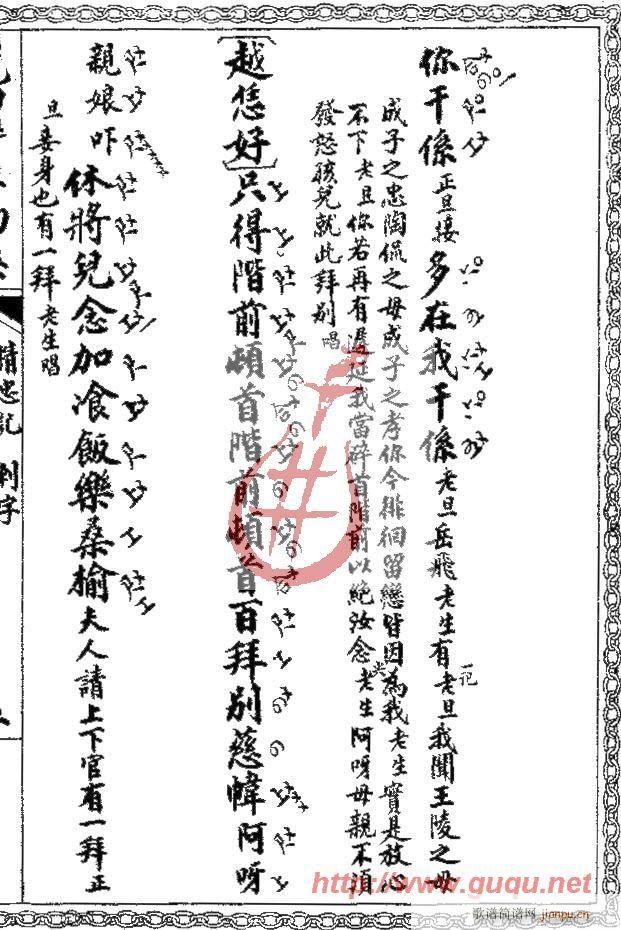 你干係正旦接多在我干係老旦岳飛老生有老旦我聞王陵之母
成子之忠陶侃之母成子之孝你今徘徊留戀皆因為我老生實是放心
不下老旦你若再有遲延我當碎首階前以絕汝念老生阿呀母親不須
發怒孩兒就此拜別唱
[越恁好]只得階前頓首階前頓首百拜別慈幃阿呀
親娘吓休將兒念加飡飯樂桑榆夫人請上下官有一拜正
旦妾身也有一拜老生唱
精忠記 刺字
http://www.guqu.net
歌谱简谱网
jianpu.cn